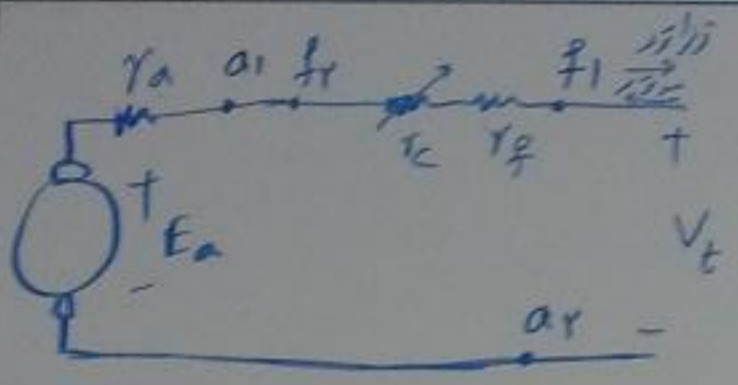 ra a1 f۲ f1
rc rf +
+
Ea
Vt
-
a۲ -